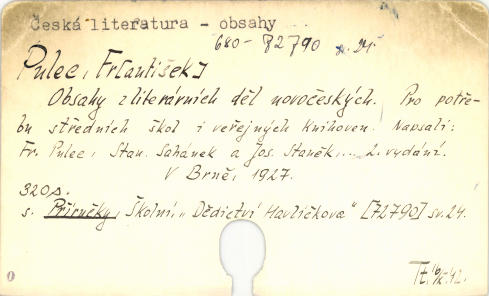 Česká literatura - obsahy
680-72790 sv. 24.
Pulec, Fr[antišek]
Obsahy z literárních děl novočeských. Pro potře-
bu středních škol i veřejných knihoven. Napsali:
Fr. Pulec, Stan. Sahánek a Jos. Staněk,... 2. vydání.
V Brně, 1927.
320 s.
s. Příručky, Školní, „Dědictví Havlíčkova" [72790] sv. 24.
0